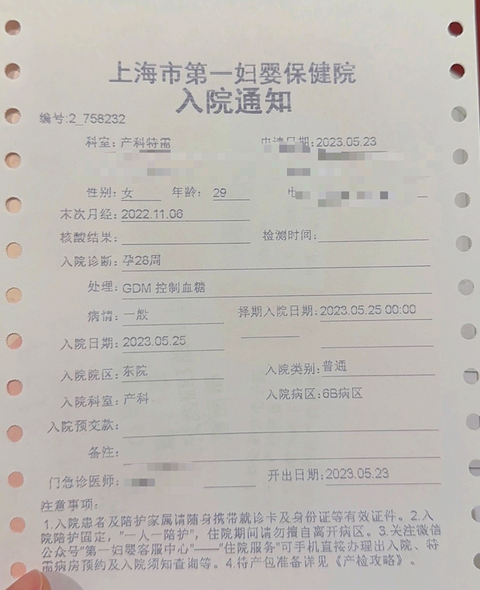 上海市第一妇婴保健院
入院通知
编号:2_758232
科室: 产科特需 申请日期:2023.05.23
性别: 女 年龄: 29
末次月经: 2022.11.06
核酸结果: 检测时间:
入院诊断: 孕28周
处理: GDM 控制血糖
病情: 一般 择期入院日期: 2023.05.25 00:00
入院日期: 2023.05.25
入院院区: 东院 入院类别: 普通
入院科室: 产科 入院病区: 6B病区
入院预交款:
备注:
门急诊医师: 开出日期: 2023.05.23
注意事项:
1.入院患者及陪护家属请随身携带就诊卡及身份证等有效证件。2.入
院陪护固定，"一人一陪护"，住院期间请勿擅自离开病区。3.关注微信
公众号"第一妇婴客服中心"——"住院服务"可手机直接办理出入院、特
需病房预约及入院须知查询等。4.待产包准备详见《产检攻略》。